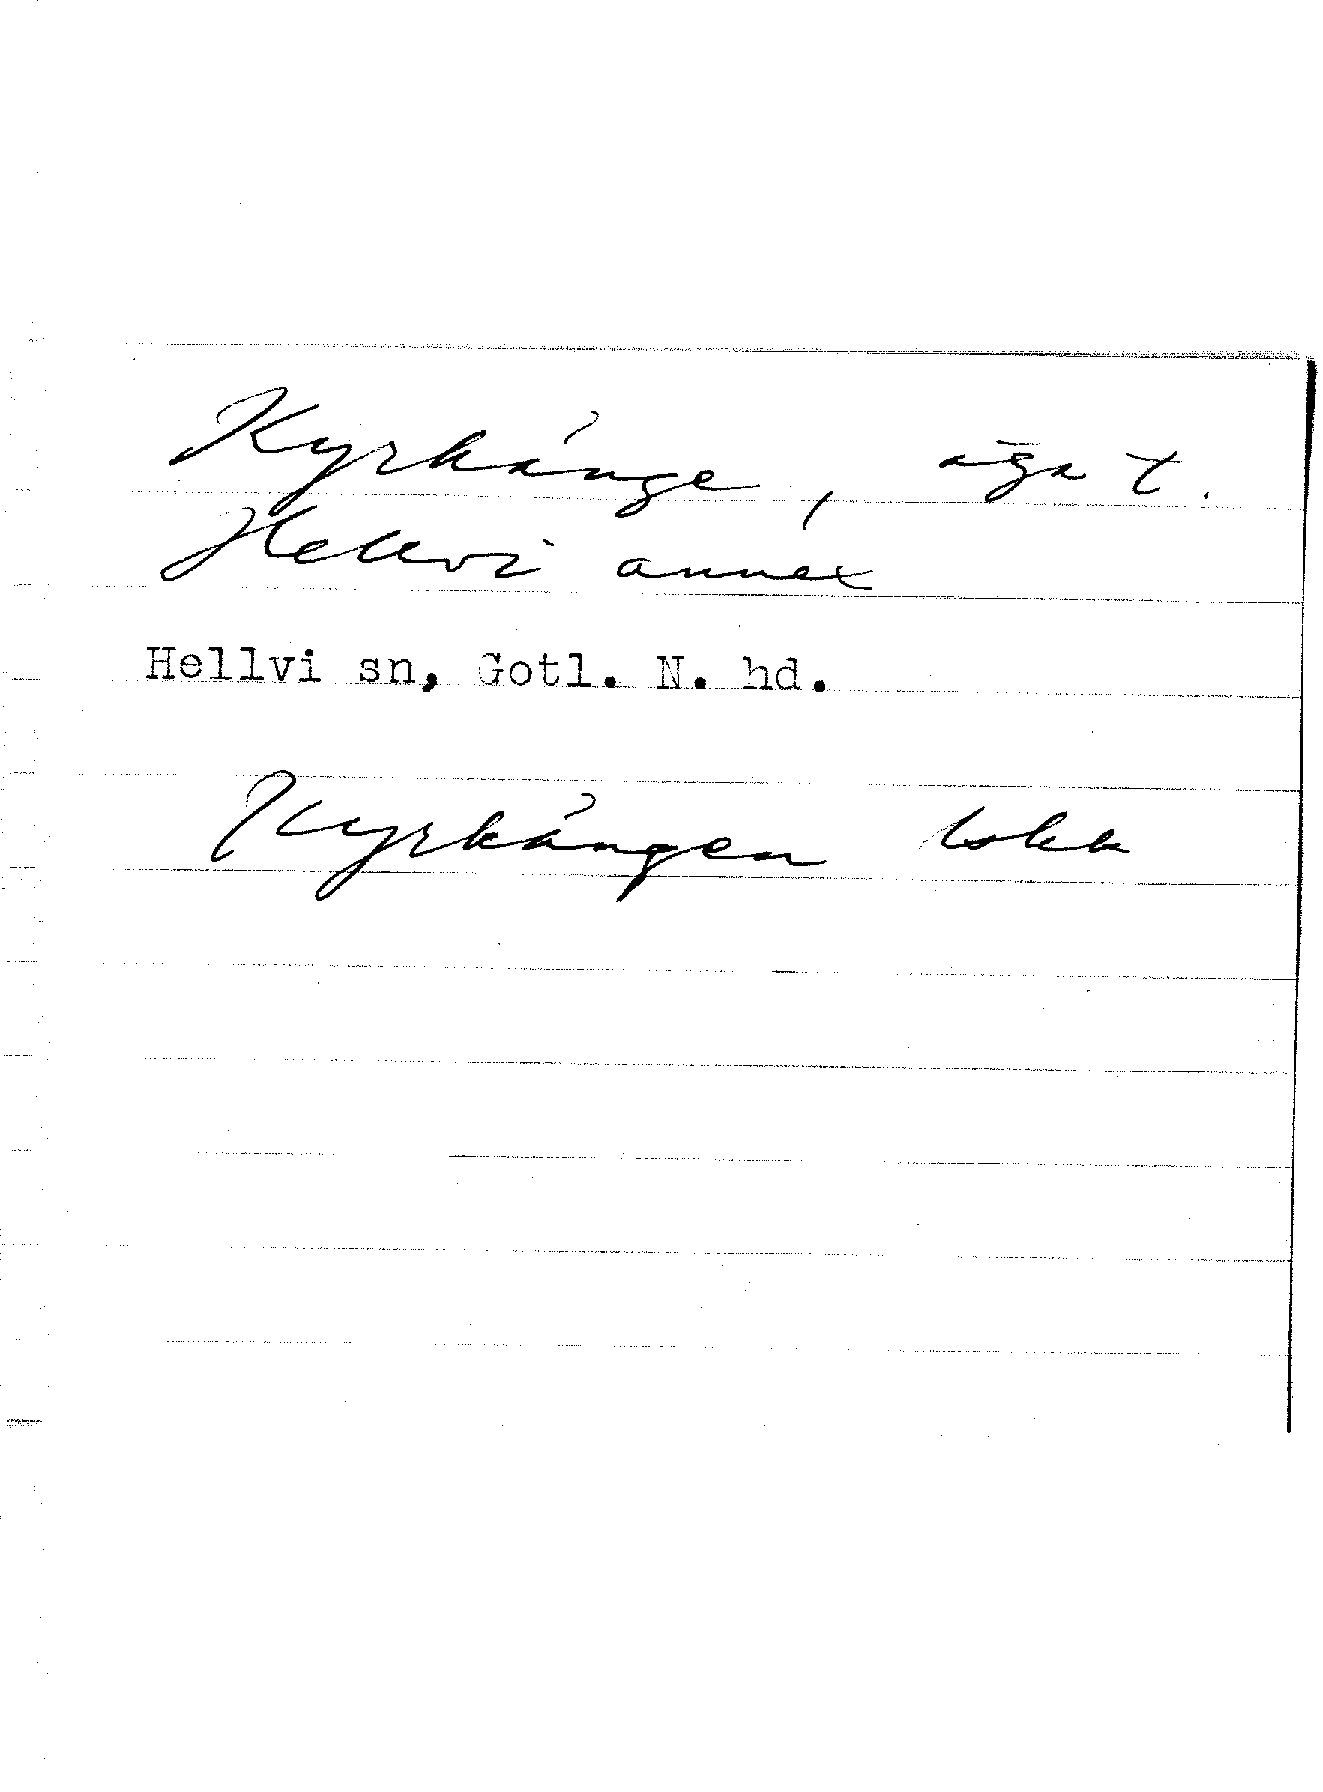 Kyrkänge, äga t.
Hellvi annex
Hellvi sn, Gotl. N. hd.
Kyrkängen